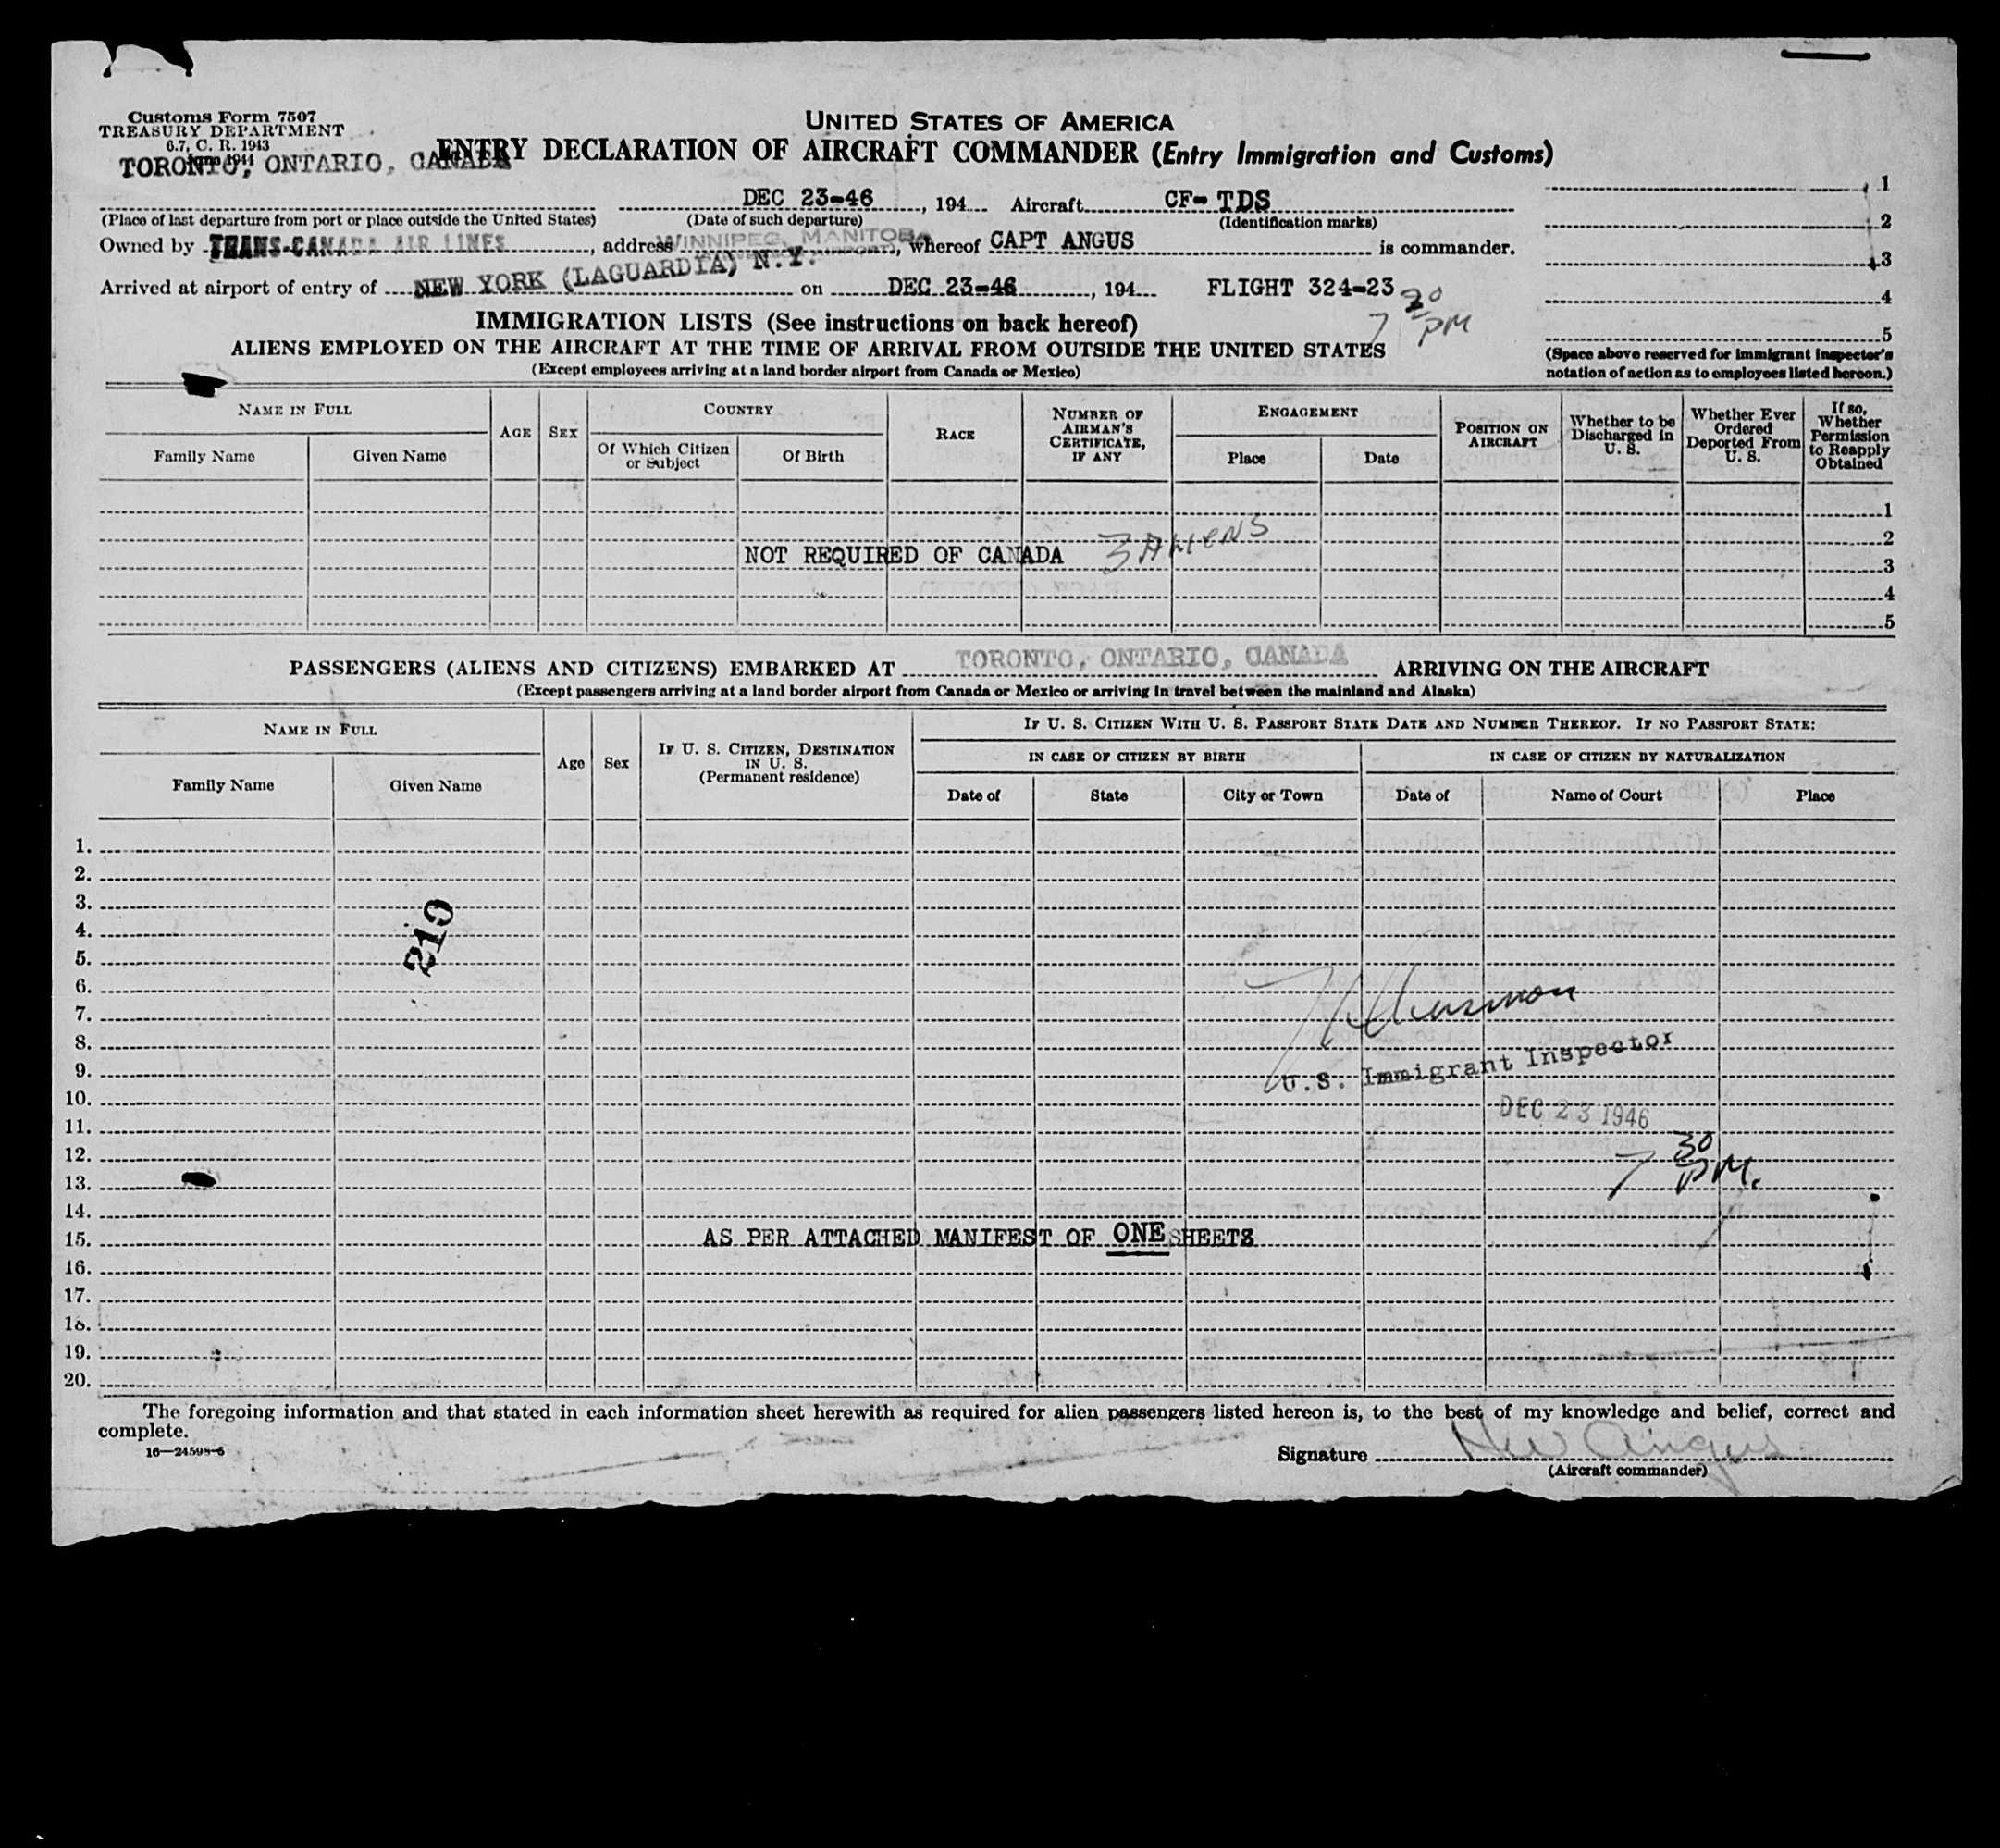 Customs Form 7507
TREASURY DEPARTMENT
6.7, C. R. 1943
June 1944
UNITED STATES OF AMERICA
ENTRY DECLARATION OF AIRCRAFT COMMANDER (Entry Immigration and Customs)
TORONTO, ONTARIO, CANADA
DEC 23-46, 194 Aircraft CF- TDS
(Place of last departure from port or place outside the United States) (Date of such departure) (Identification marks)
Owned by TRANS-CANADA AIR LINES, address WINNIPEG, MANITOBA, whereof CAPT ANGUS is commander.
Arrived at airport of entry of NEW YORK (LAGUARDIA) N.Y. on DEC 23-46, 194 FLIGHT 324-23
7 PM
1
2
3
4
5
(Space above reserved for immigrant inspector's
notation of action as to employees listed hereon.)
IMMIGRATION LISTS (See instructions on back hereof)
ALIENS EMPLOYED ON THE AIRCRAFT AT THE TIME OF ARRIVAL FROM OUTSIDE THE UNITED STATES
(Except employees arriving at a land border airport from Canada or Mexico)
NAME IN FULL
Family Name Given Name
AGE
SEX
COUNTRY
Of Which Citizen
or Subject
Of Birth
RACE
NUMBER OF
AIRMAN'S
CERTIFICATE,
IF ANY
ENGAGEMENT
Place Date
POSITION ON
AIRCRAFT
Whether to be
Discharged in
U. S.
Whether Ever
Ordered
Deported From
U. S.
If so,
Whether
Permission
to Reapply
Obtained
1
2
NOT REQUIRED OF CANADA 3 ALIENS
3
4
5
PASSENGERS (ALIENS AND CITIZENS) EMBARKED AT TORONTO, ONTARIO, CANADA ARRIVING ON THE AIRCRAFT
(Except passengers arriving at a land border airport from Canada or Mexico or arriving in travel between the mainland and Alaska)
NAME IN FULL
Family Name Given Name
Age
Sex
IF U. S. CITIZEN, DESTINATION
IN U. S.
(Permanent residence)
IF U. S. CITIZEN WITH U. S. PASSPORT STATE DATE AND NUMBER THEREOF. IF NO PASSPORT STATE:
IN CASE OF CITIZEN BY BIRTH
Date of State City or Town
IN CASE OF CITIZEN BY NATURALIZATION
Date of Name of Court Place
1.
2.
3.
4.
210
5.
6.
7.
8.
9.
U.S. Immigrant Inspector
10.
DEC 23 1946
11.
12.
7 30 PM.
13.
14.
15.
AS PER ATTACHED MANIFEST OF ONE SHEETS
16.
17.
18.
19.
20.
The foregoing information and that stated in each information sheet herewith as required for alien passengers listed hereon is, to the best of my knowledge and belief, correct and
complete.
16—24598-5
Signature Angus
(Aircraft commander)